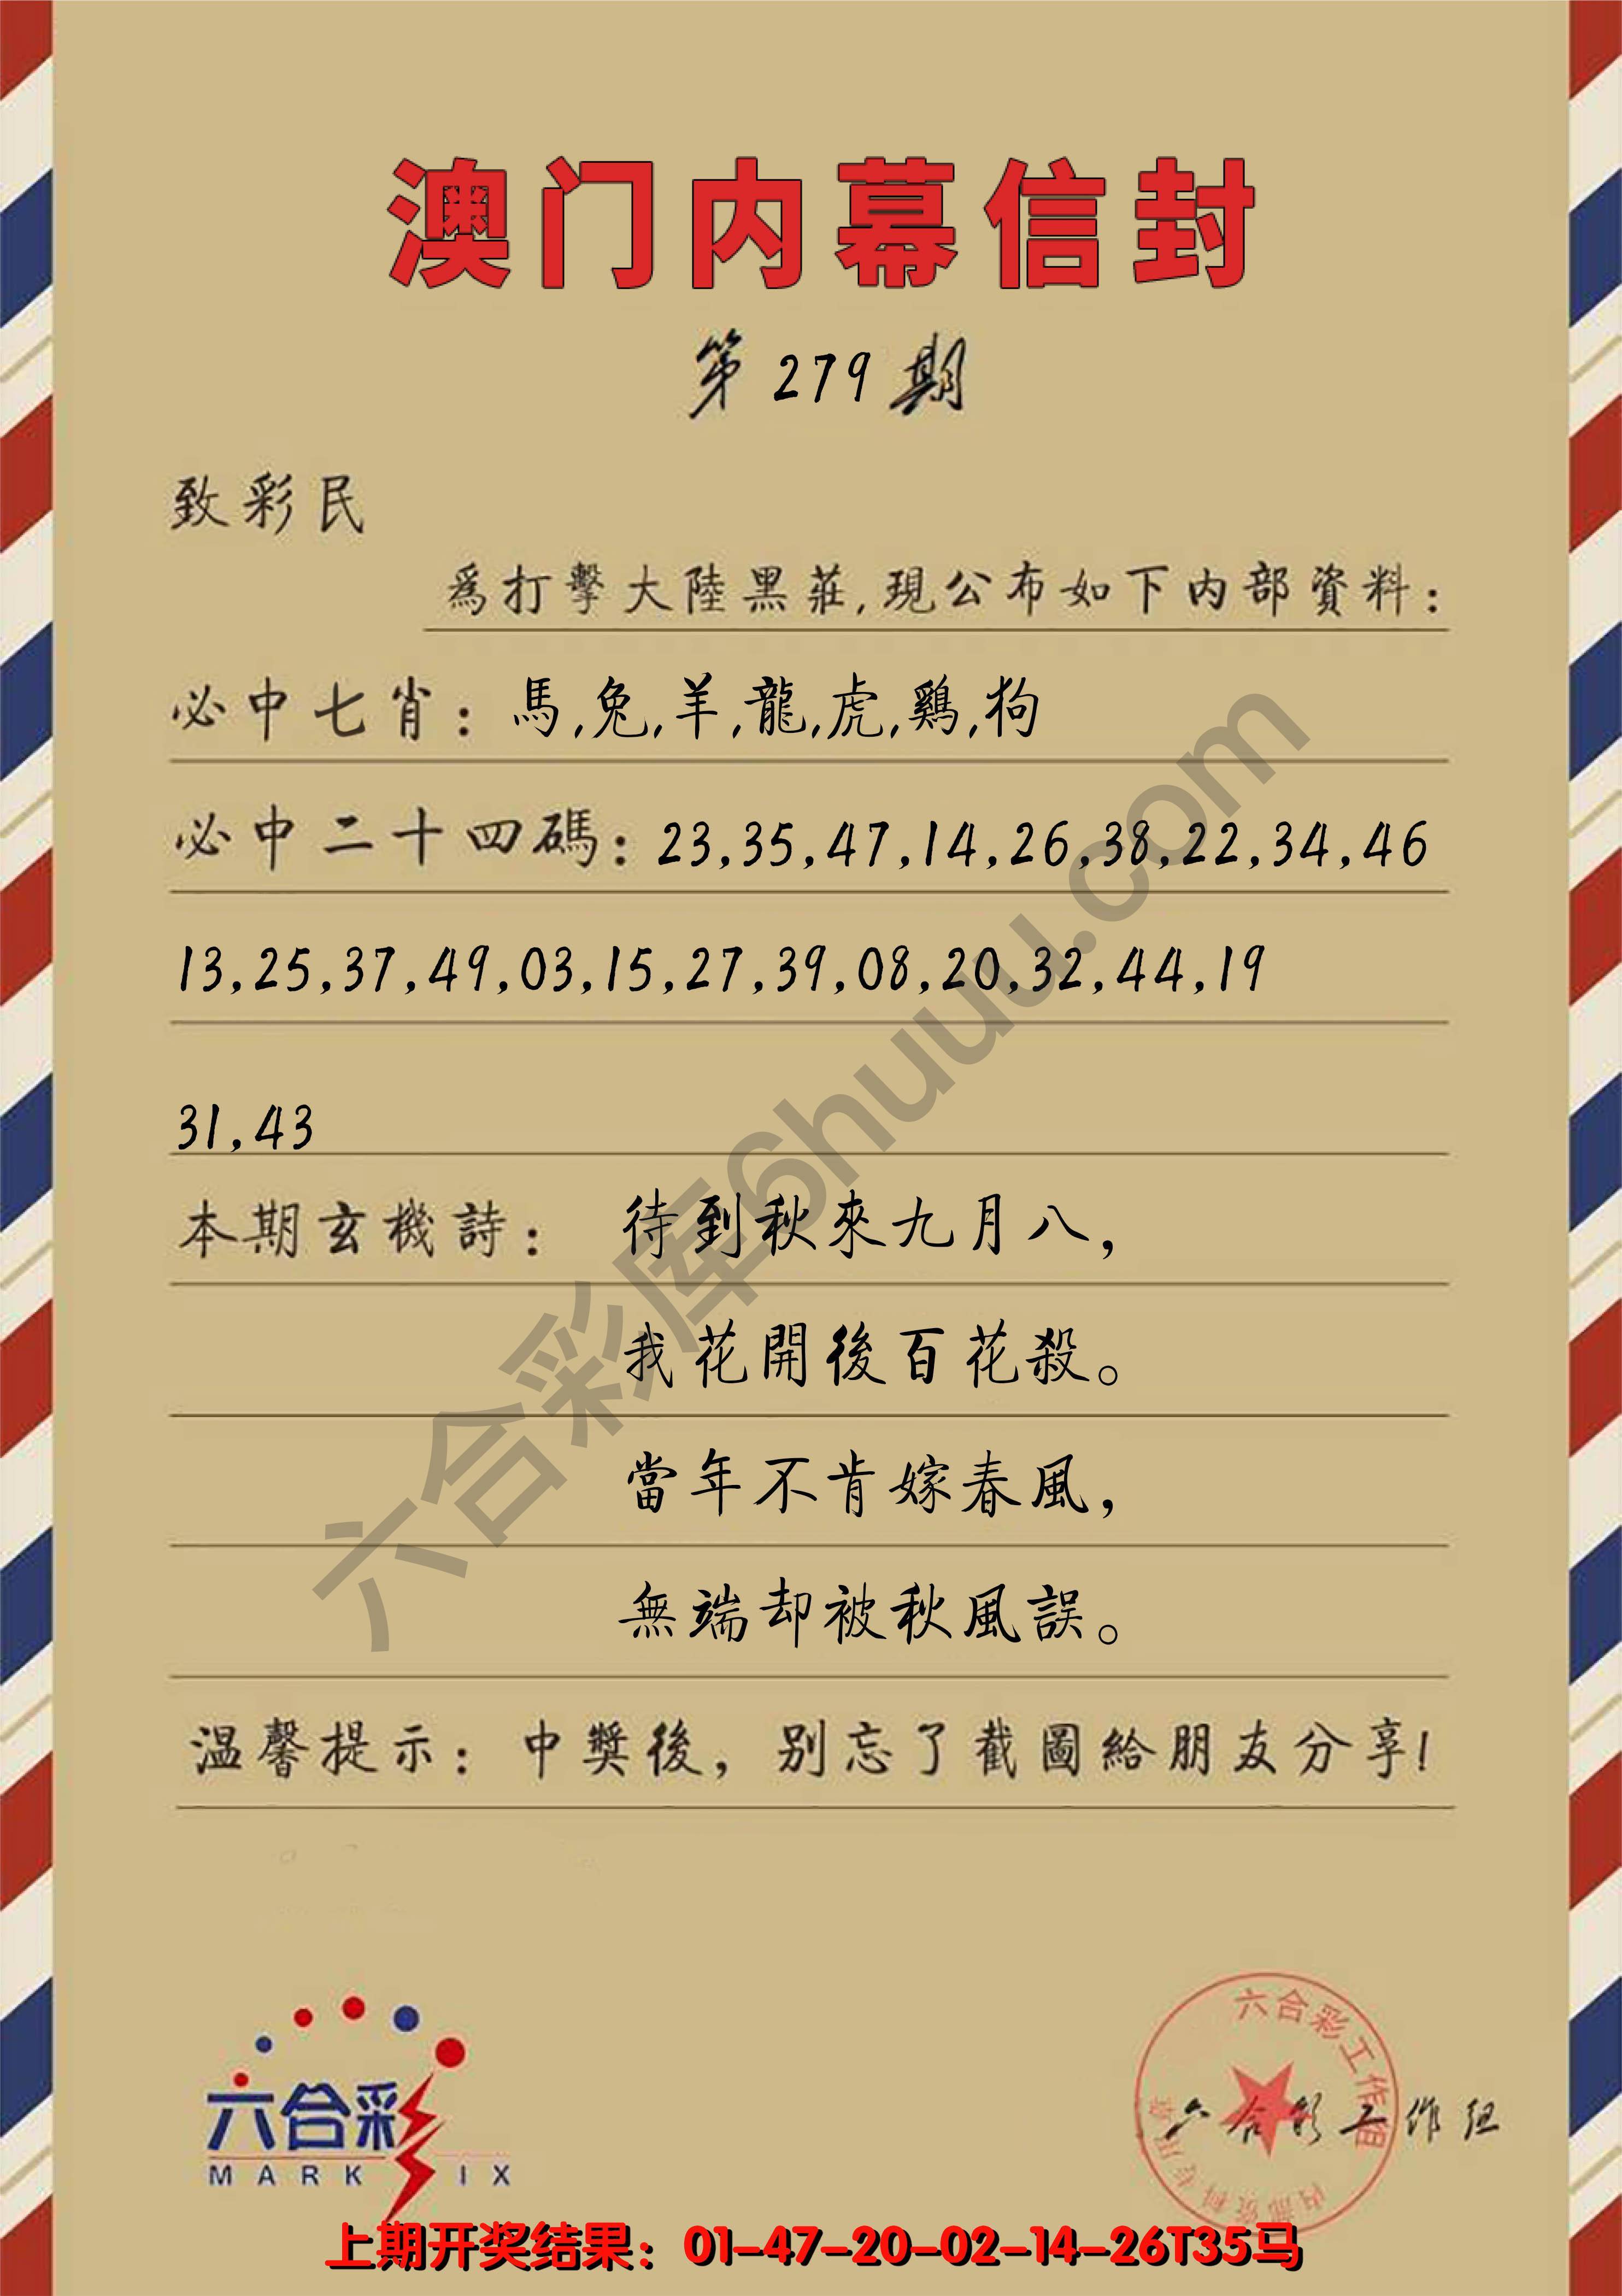 澳门内幕信封
第279期
致彩民
為打擊大陸黑莊,現公布如下内部資料:
必中七肖: 馬,兔,羊,龍,虎,鷄,狗
必中二十四碼: 23,35,47,14,26,38,22,34,46
13,25,37,49,03,15,27,39,08,20,32,44,19
31,43
本期玄機詩: 待到秋來九月八,
我花開後百花殺。
當年不肯嫁春風,
無端却被秋風誤。
温馨提示: 中獎後, 别忘了截圖給朋友分享!
六合彩库6huuu.com
六合彩
MARK IX
六合彩工作组
六合彩工作组
上期开奖结果: 01-47-20-02-14-26T35马